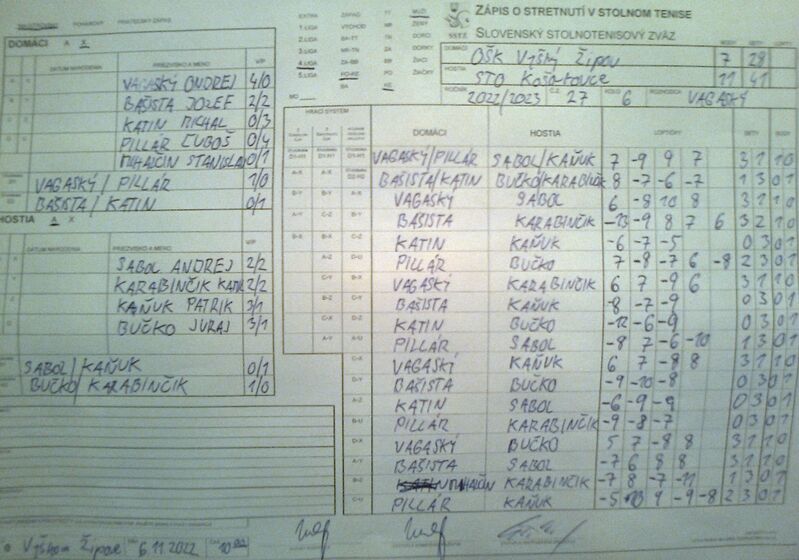 POHÁROVÝ PRIATEĽSKÝ ZÁPAS
EXTRA ZÁPAD TT MUŽI
1. LIGA VÝCHOD NR ŽENY
2. LIGA BA-TT TN DORCI
3. LIGA NR-TN ZA DORKY
4. LIGA ZA-BB BB ŽIACI
5. LIGA PO-KE PO ŽIAČKY
BA KE
SSTZ
ZÁPIS O STRETNUTÍ V STOLNOM TENISE
SLOVENSKÝ STOLNOTENISOVÝ ZVÄZ
DOMÁCI OŠK VYŠNÝ ŽIPOV 7 28
HOSTIA STO KOŠAROVCE 11 41
ROČNÍK 2022/2023 Č.Z. 27 KOLO 6 ROZHODCA VAGASKÝ
DOMÁCI A X
DÁTUM NARODENIA PRIEZVISKO A MENO V/P
VAGASKÝ ONDREJ 4/0
BAŠISTA JOZEF 2/2
KATIN MICHAL 0/3
PILLÁR ĽUBOŠ 0/4
MIHALČIN STANISLAV 0/1
VAGASKÝ / PILLÁR 1/0
BAŠISTA / KATIN 0/1
HOSTIA A X
DÁTUM NARODENIA PRIEZVISKO A MENO V/P
SABOL ANDREJ 2/2
KARABINČIK 2/2
KAŇUK PATRIK 3/1
BUČKO JURAJ 3/1
SABOL / KAŇUK 0/1
BUČKO / KARABINČIK 1/0
HRACÍ SYSTÉM DOMÁCI HOSTIA LOPTIČKY SETY BODY
VAGASKÝ/PILLÁR SABOL/KAŇUK 7 -9 9 7 3 1 1 0
BAŠISTA/KATIN BUČKO/KARABINČIK 8 -7 -6 -7 1 3 0 1
VAGASKÝ SABOL 6 -8 10 8 3 1 1 0
BAŠISTA KARABINČIK -13 -9 8 7 6 3 2 1 0
KATIN KAŇUK -6 -7 -5 0 3 0 1
PILLÁR BUČKO 7 -8 -7 6 -8 2 3 0 1
VAGASKÝ KARABINČIK 6 7 -9 6 3 1 1 0
BAŠISTA KAŇUK -8 -7 -9 0 3 0 1
KATIN BUČKO -12 -6 -9 0 3 0 1
PILLÁR SABOL -8 7 -6 -10 1 3 0 1
VAGASKÝ KAŇUK 6 7 -8 8 3 1 1 0
BAŠISTA BUČKO -9 -10 -8 0 3 0 1
KATIN SABOL -6 -9 -9 0 3 0 1
PILLÁR KARABINČIK -9 -8 -7 0 3 0 1
VAGASKÝ BUČKO 5 7 -8 8 3 1 1 0
BAŠISTA SABOL -7 6 8 8 3 1 1 0
MIHALČIN KARABINČIK -7 8 -7 -11 1 3 0 1
PILLÁR KAŇUK -5 13 9 -9 -8 2 3 0 1
VYŠNOM ŽIPOVE DŇA 6.11.2022 10:00